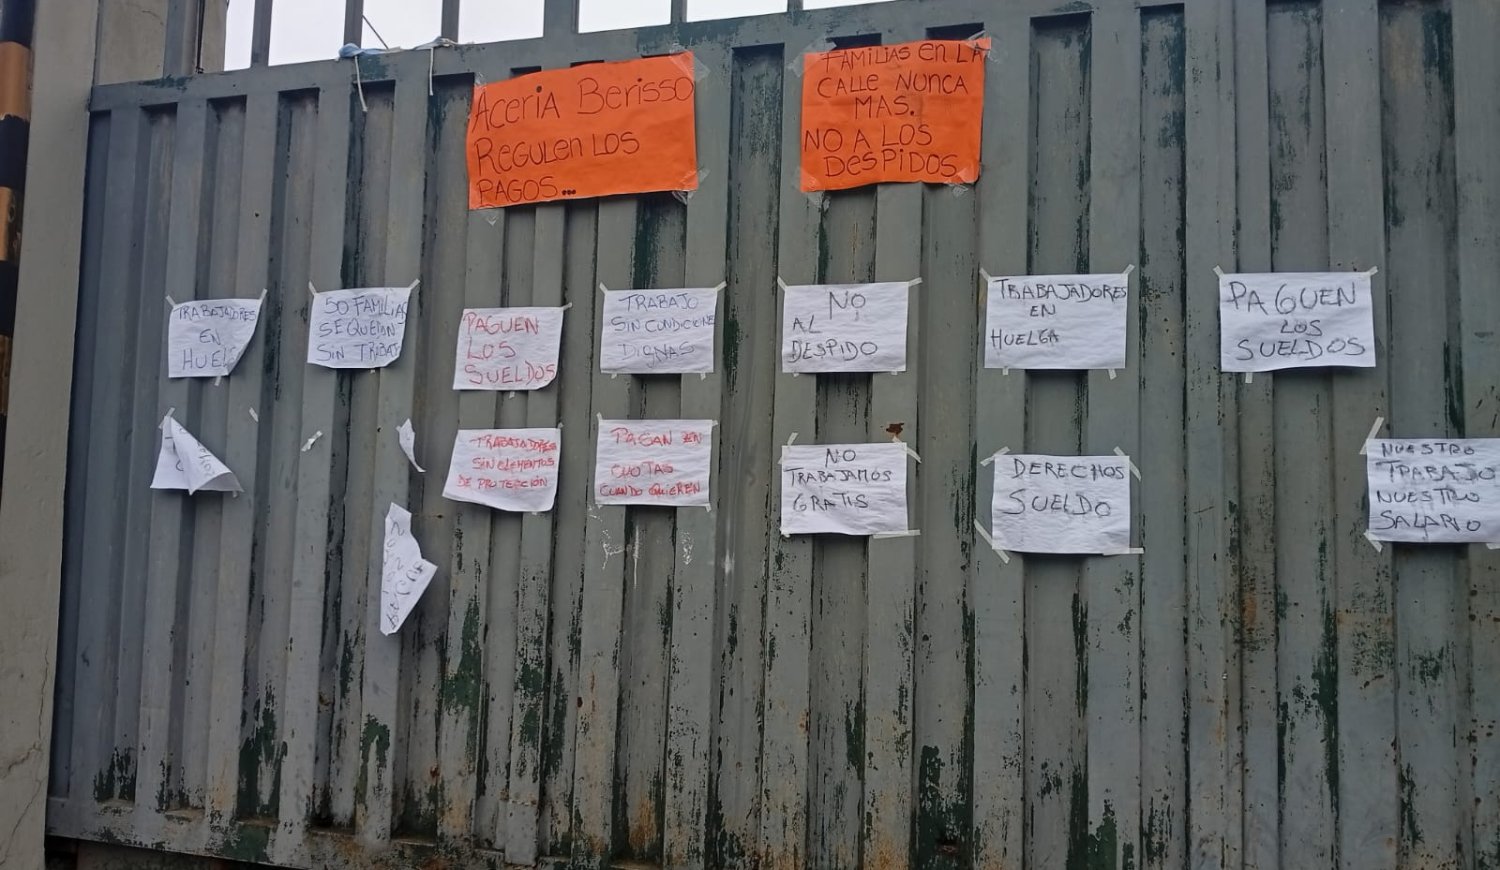 Aceria Berisso
Regulen los
pagos...
FAMILIAS En LA
CALLE NUNCA
MAS.
NO A LOS
DESPIDOS
TRABAJADORES
EN
50 FAMILIAS
SE QUEDAN
SIN TRABAJ
PAGUEN
LOS
SUELDOS
TRABAJO
SIN CONDICIONE
DIGNAS
NO
AL
DESPIDO
TRABAJADORES
EN
HUELGA
PAGUEN
LOS
SUELDOS
TRABAJADORES
SIN ELEMENTOS
DE PROTECCIÓN
PAGAN EN
CUOTAS
CUANDO QUIEREN
NO
TRABAJAMOS
GRATIS
DERECHOS
SUELDO
NUESTRO
TRABAJO
NUESTRO
SALARIO